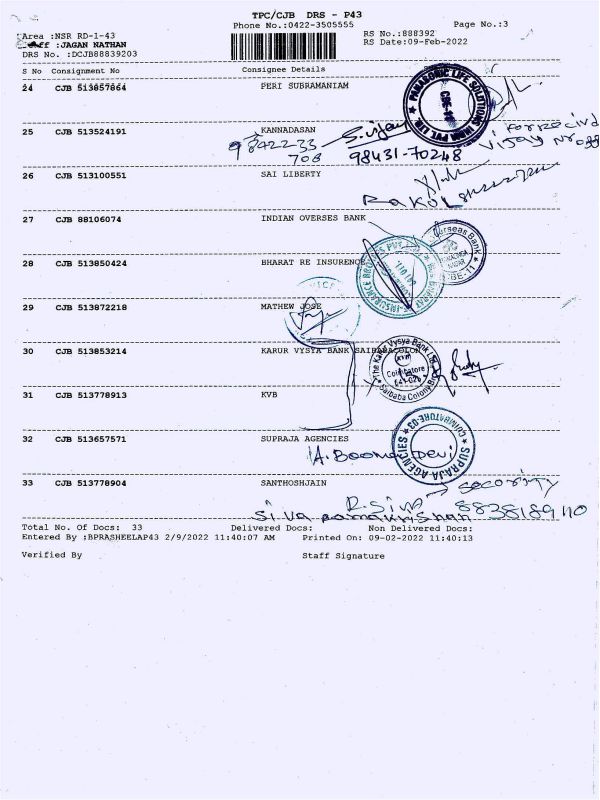 TPC/CJB DRS - P43
Phone No.:0422-3505555
Page No.:3
Area :NSR RD-1-43
RS No.:888392
:JAGAN NATHAN
RS Date:09-Feb-2022
DRS No. :DCJB88839203
S No Consignment No Consignee Details
24 CJB 513857864 PERI SUBRAMANIAM
PANASONIC LIFE SOLUTIONS INDIA PVT. LTD.
25 CJB 513524191 KANNADASAN
9842233
708
S. Vijay
98431-70248
26 CJB 513100551 SAI LIBERTY
27 CJB 88106074 INDIAN OVERSES BANK
Overseas Bank
28 CJB 513850424 BHARAT RE INSURENCE
29 CJB 513872218 MATHEW JOSE
30 CJB 513853214 KARUR VYSYA BANK SAIBABACOLON
The Karur Vysya Bank Ltd
KVB
Coimbatore
641-020
Saibaba Colony
31 CJB 513778913 KVB
32 CJB 513657571 SUPRAJA AGENCIES
SUPRAJA AGENCIES
COIMBATORE-03
A. Booma Devi
33 CJB 513778904 SANTHOSHJAIN
R. Siva → security
Siva ramakrishnan 8838189110
Total No. Of Docs: 33 Delivered Docs: Non Delivered Docs:
Entered By :BPRASHEELAP43 2/9/2022 11:40:07 AM Printed On: 09-02-2022 11:40:13
Verified By Staff Signature